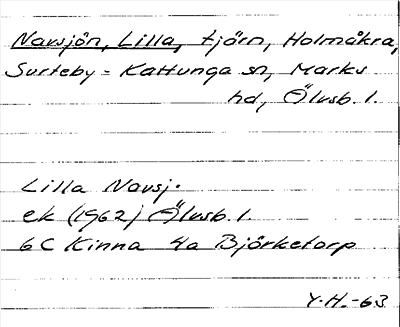 Navsjön, Lilla, tjärn, Holmåkra,
Surteby-Kattunga sn, Marks
hd, Älvsb. l.
Lilla Navsj.
ek (1962) Älvsb. l
6C Kinna 4a Björketorp
Y.H.-63